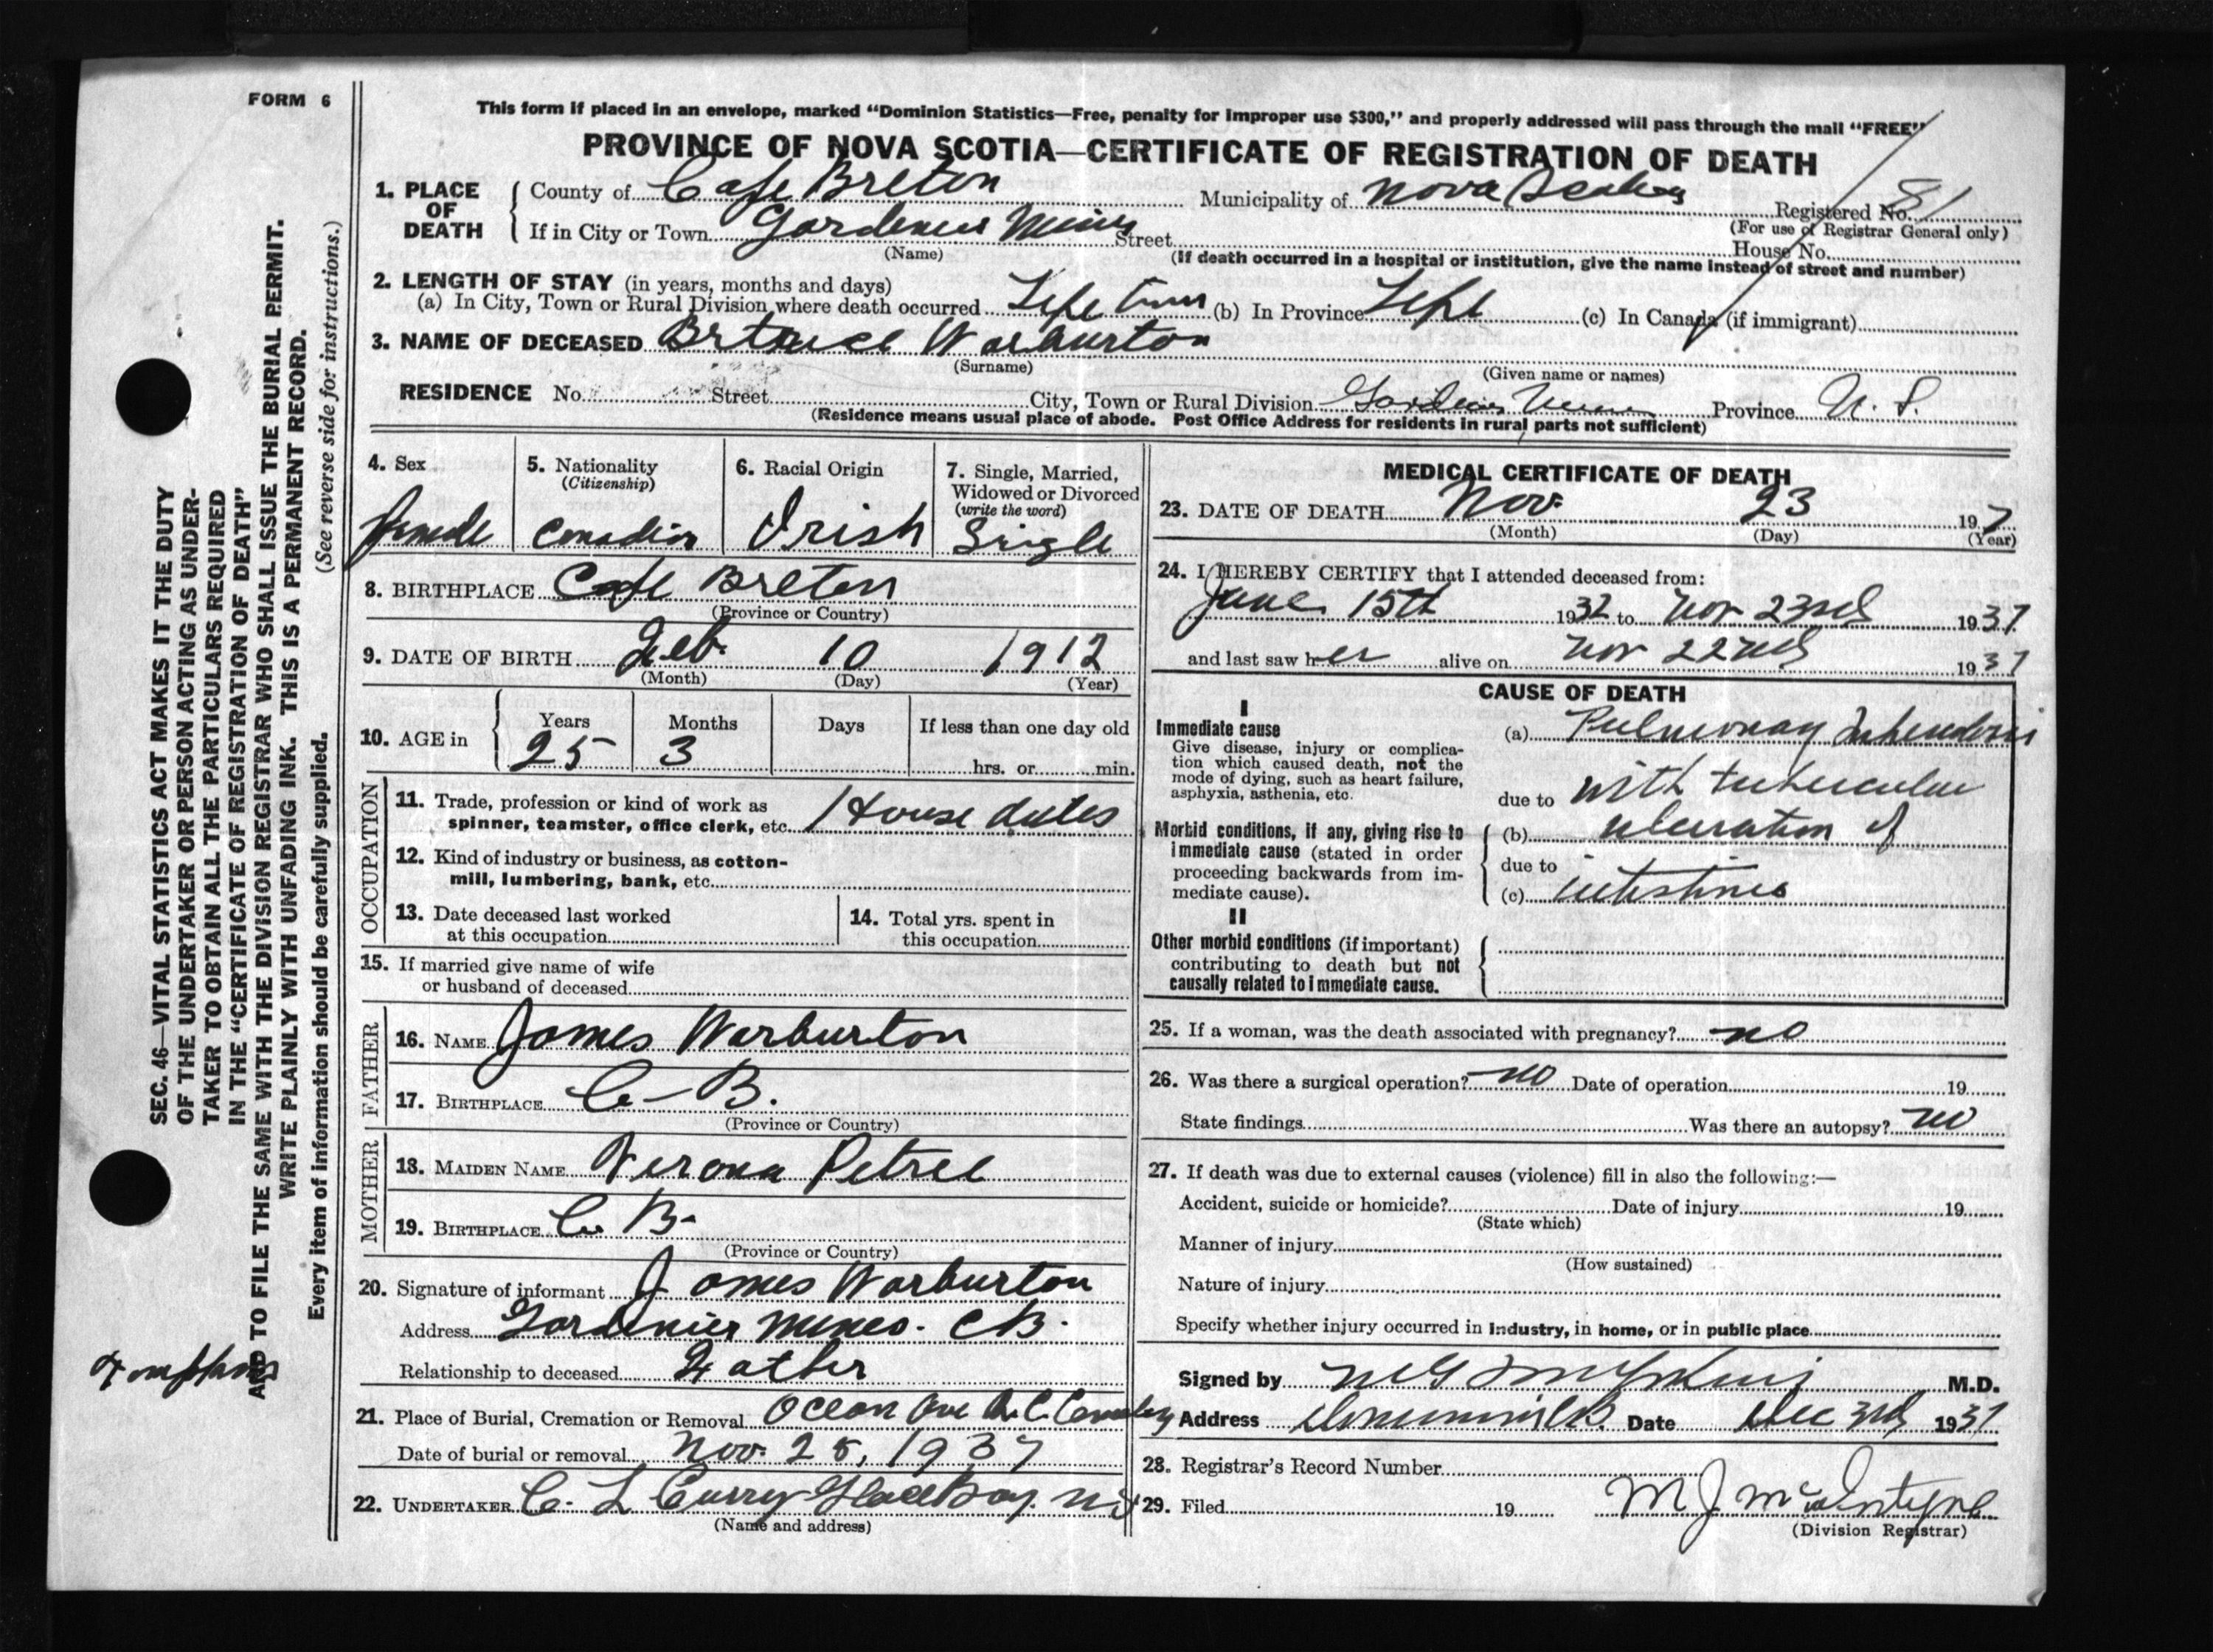 FORM 6
This form if placed in an envelope, marked “Dominion Statistics—Free, penalty for improper use $300,” and properly addressed will pass through the mail “FREE”
PROVINCE OF NOVA SCOTIA—CERTIFICATE OF REGISTRATION OF DEATH
1. PLACE OF DEATH
County of Cape Breton Municipality of Nova Scotia Registered No. 81
(For use of Registrar General only)
If in City or Town Gardiner Mines Street House No.
(Name) (If death occurred in a hospital or institution, give the name instead of street and number)
2. LENGTH OF STAY (in years, months and days)
(a) In City, Town or Rural Division where death occurred Life (b) In Province Life (c) In Canada (if immigrant)
3. NAME OF DECEASED Warburton
(Surname) (Given name or names)
RESIDENCE No. Street City, Town or Rural Division Gardiner Mines Province N. S.
(Residence means usual place of abode. Post Office Address for residents in rural parts not sufficient)
4. Sex female
5. Nationality (Citizenship) Canadian
6. Racial Origin Irish
7. Single, Married, Widowed or Divorced (write the word) Single
8. BIRTHPLACE Cape Breton
(Province or Country)
9. DATE OF BIRTH Feb. 10 1912
(Month) (Day) (Year)
10. AGE in Years 25 Months 3 Days If less than one day old
hrs. or min.
OCCUPATION
11. Trade, profession or kind of work as
spinner, teamster, office clerk, etc. House duties
12. Kind of industry or business, as cotton-
mill, lumbering, bank, etc.
13. Date deceased last worked
at this occupation
14. Total yrs. spent in
this occupation
15. If married give name of wife
or husband of deceased
FATHER
16. NAME James Warburton
17. BIRTHPLACE C-B.
(Province or Country)
MOTHER
18. MAIDEN NAME Verona Petree
19. BIRTHPLACE C. B-
(Province or Country)
20. Signature of informant James Warburton
Address Gardinier Mines. C B.
Relationship to deceased Father
21. Place of Burial, Cremation or Removal Ocean Ave R.C. Cemetery
Date of burial or removal Nov. 25, 1937
22. UNDERTAKER C. L Curry Glace Bay. N S
(Name and address)
MEDICAL CERTIFICATE OF DEATH
23. DATE OF DEATH Nov. 23 1937
(Month) (Day) (Year)
24. I HEREBY CERTIFY that I attended deceased from:
June 15th 1932 to Nov 23rd 1937
and last saw her alive on Nov 22nd 1937
CAUSE OF DEATH
I
Immediate cause
Give disease, injury or complica-
tion which caused death, not the
mode of dying, such as heart failure,
asphyxia, asthenia, etc.
(a) Pulmonary Tuberculosis
due to with tubercular
Morbid conditions, if any, giving rise to
immediate cause (stated in order
proceeding backwards from im-
mediate cause).
(b) ulceration of
due to
(c) intestines
II
Other morbid conditions (if important)
contributing to death but not
causally related to immediate cause.
25. If a woman, was the death associated with pregnancy? no
26. Was there a surgical operation? no Date of operation 19
State findings Was there an autopsy? no
27. If death was due to external causes (violence) fill in also the following:—
Accident, suicide or homicide? Date of injury 19
(State which)
Manner of injury
(How sustained)
Nature of injury
Specify whether injury occurred in industry, in home, or in public place
Signed by M G Tompkins M.D.
Address Dominion C.B. Date Dec 3rd 1937
28. Registrar's Record Number
29. Filed 19 M J McIntyre
(Division Registrar)
SEC. 46—VITAL STATISTICS ACT MAKES IT THE DUTY
OF THE UNDERTAKER OR PERSON ACTING AS UNDER-
TAKER TO OBTAIN ALL THE PARTICULARS REQUIRED
IN THE “CERTIFICATE OF REGISTRATION OF DEATH”
AND TO FILE THE SAME WITH THE DIVISION REGISTRAR WHO SHALL ISSUE THE BURIAL PERMIT.
WRITE PLAINLY WITH UNFADING INK. THIS IS A PERMANENT RECORD.
Every item of information should be carefully supplied. (See reverse side for instructions.)
Tompkins